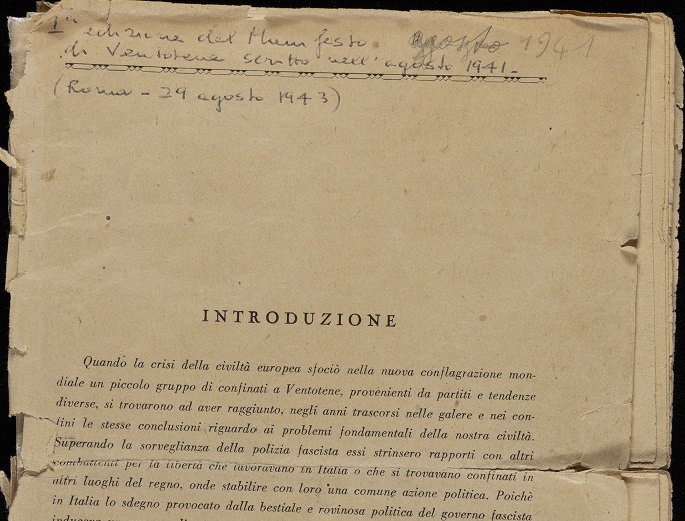 Iª edizione del Manifesto agosto 1941
di Ventotene scritto nell'agosto 1941-
(Roma - 29 agosto 1943)
INTRODUZIONE
Quando la crisi della civiltà europea sfociò nella nuova conflagrazione mon-
diale un piccolo gruppo di confinati a Ventotene, provenienti da partiti e tendenze
diverse, si trovarono ad aver raggiunto, negli anni trascorsi nelle galere e nei con-
fini le stesse conclusioni riguardo ai problemi fondamentali della nostra civiltà.
Superando la sorveglianza della polizia fascista essi strinsero rapporti con altri
combattenti per la libertà che lavoravano in Italia o che si trovavano confinati in
altri luoghi del regno, onde stabilire con loro una comune azione politica. Poichè
in Italia lo sdegno provocato dalla bestiale e rovinosa politica del governo fascista